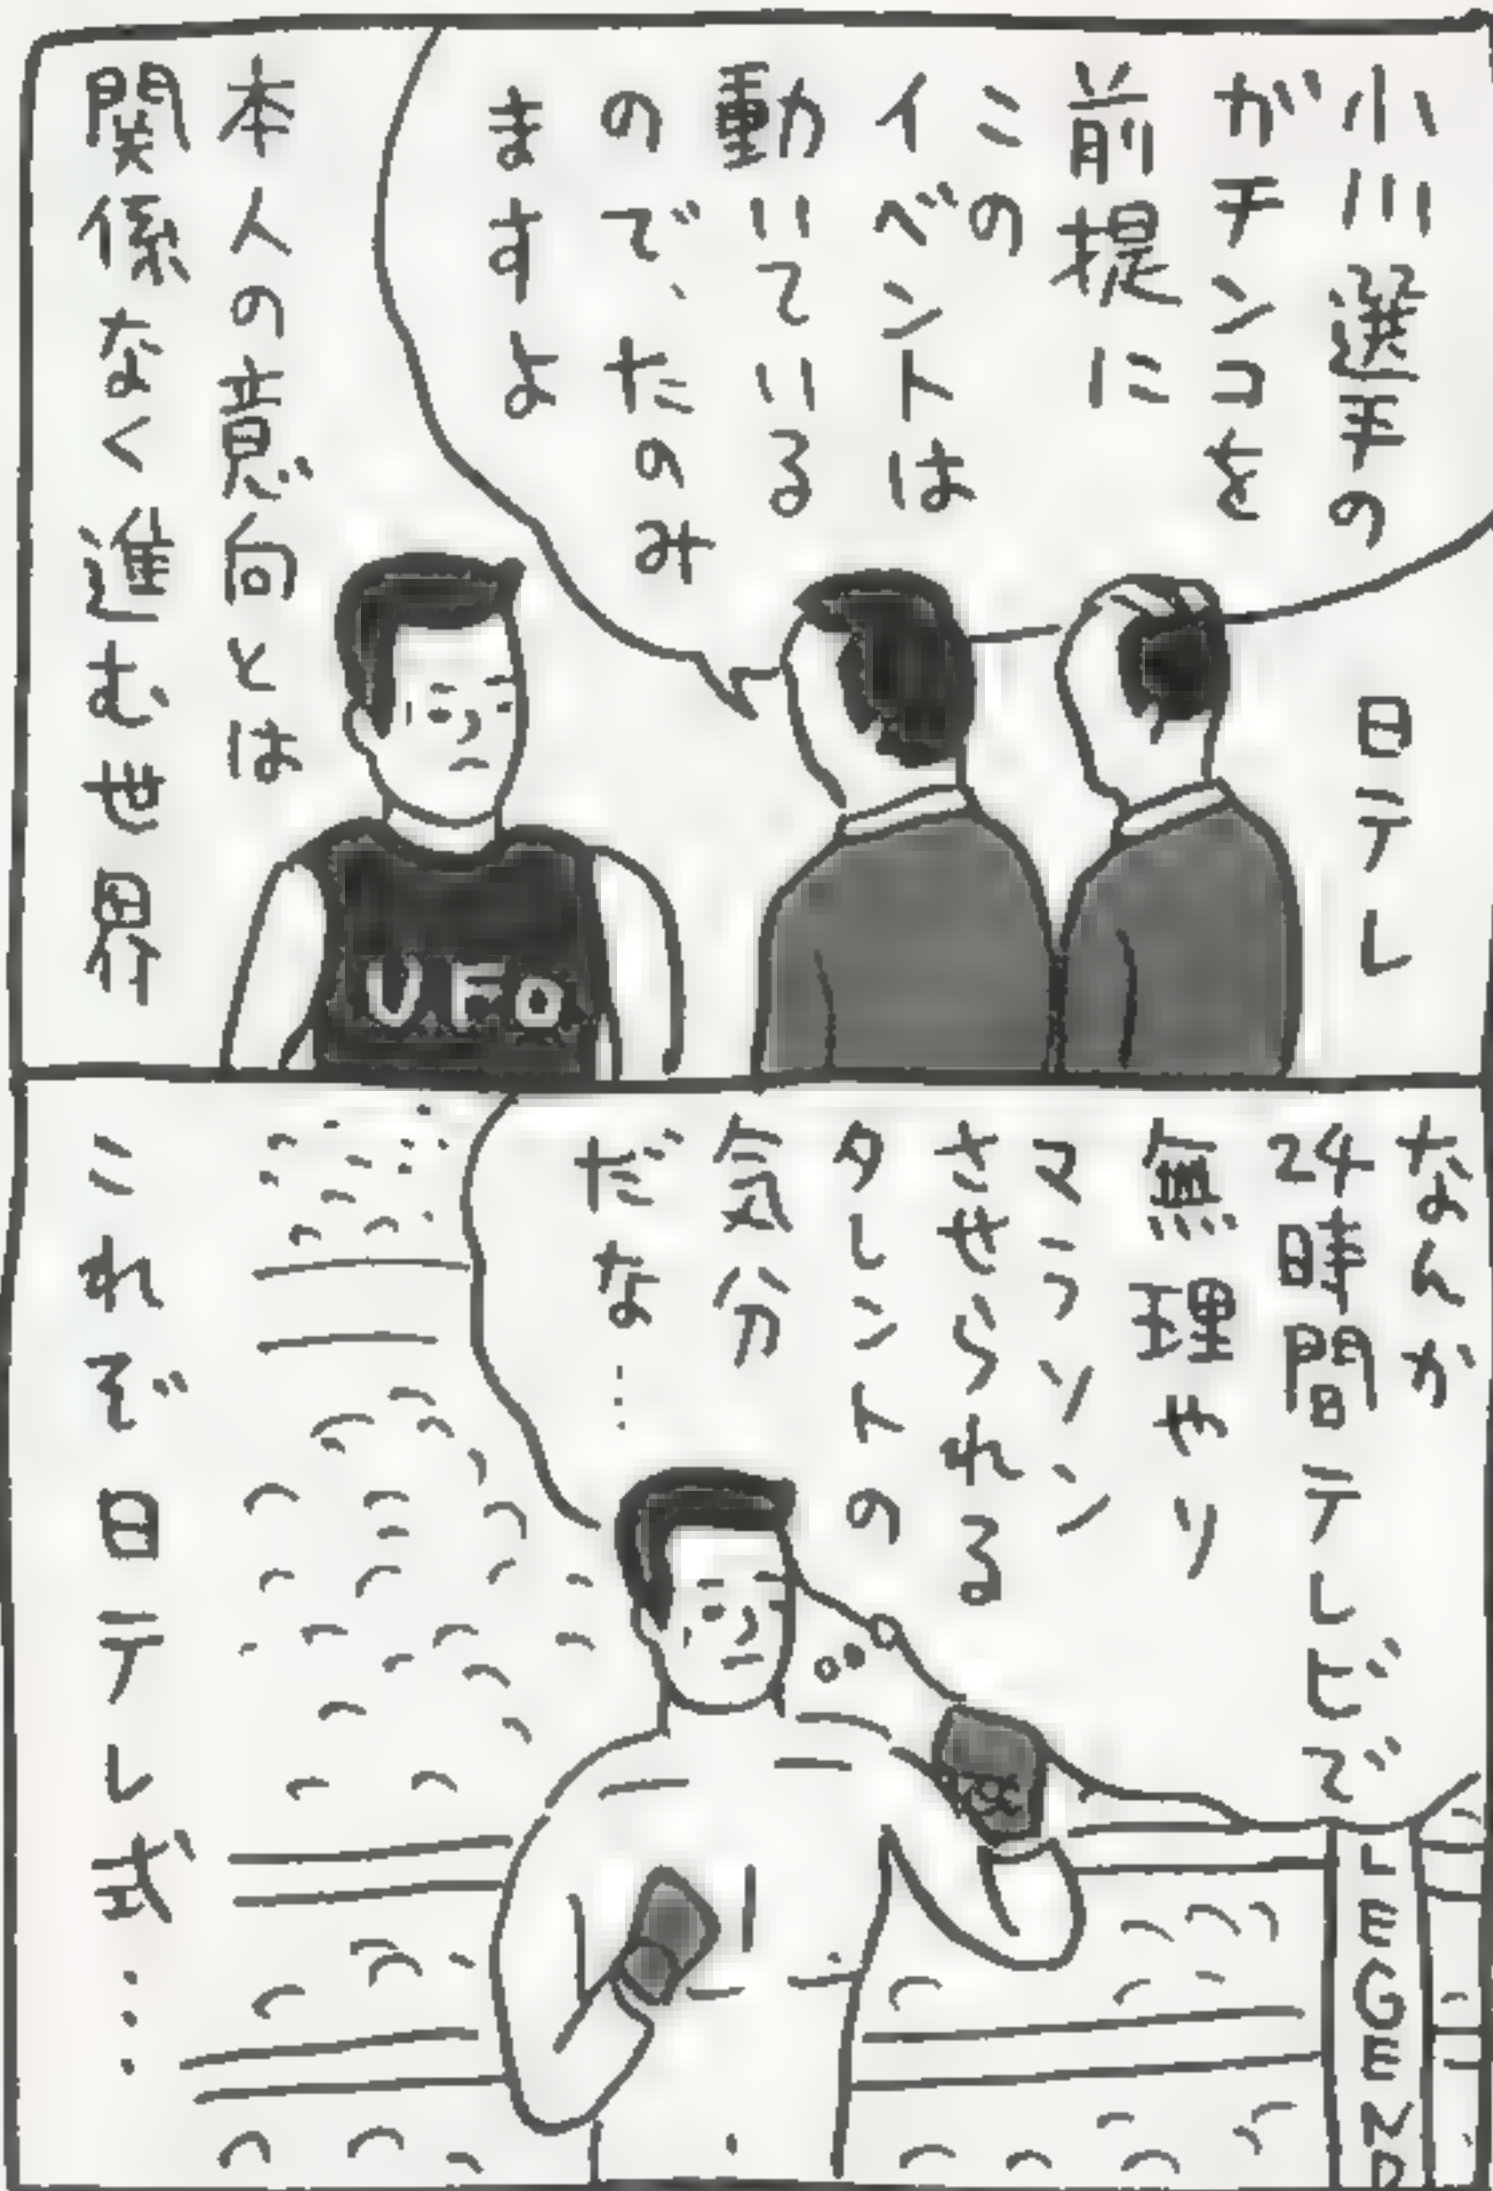 小川選手の
ガチンコを
前提に
この
イベントは
動いている
ので、たのみ
ますよ
日テレ
本人の意向とは
関係なく進むせ界
UFO
なんか
24時間テレビで
無理やり
マラソン
させられる
タレントの
気分
だな…
これぞ日テレ式…
LEGEND